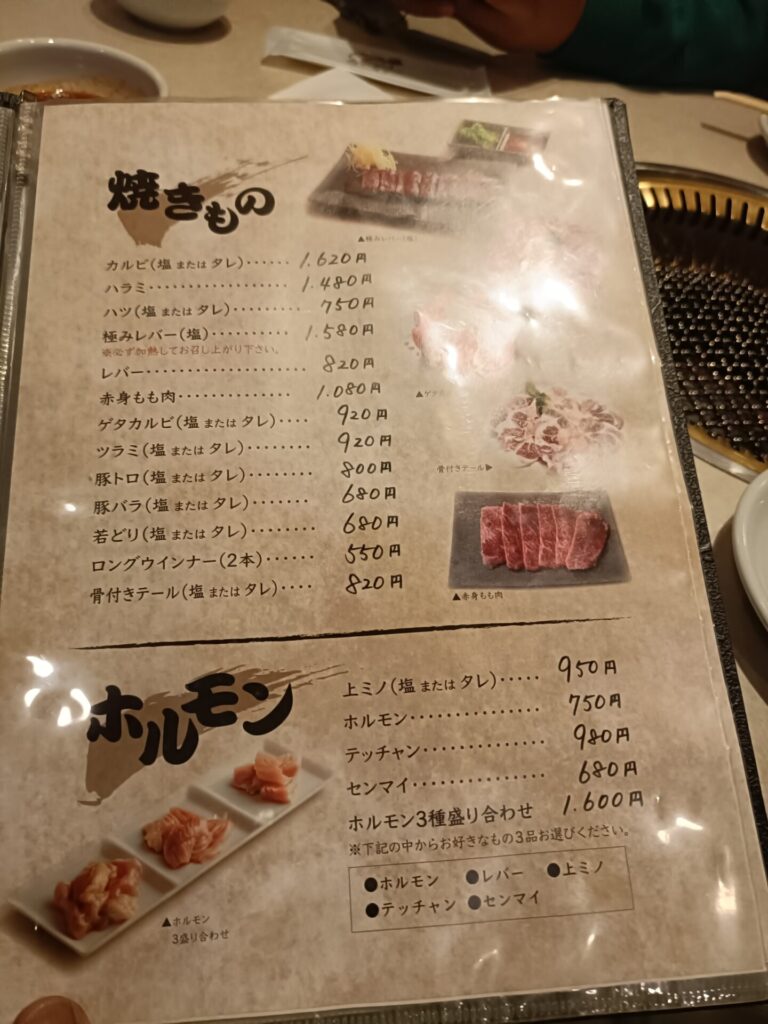 焼きもの
▲極みレバー(塩)
カルビ(塩 または タレ)······ 1.620円
ハラミ·················· 1.480円
ハツ(塩 または タレ)········· 750円
極みレバー(塩)·········· 1.580円
※必ず加熱してお召し上がり下さい。
レバー····················· 820円
赤身もも肉················ 1.080円
ゲタカルビ(塩 または タレ)···· 920円
ツラミ(塩 または タレ)········ 920円
豚トロ(塩 または タレ)········ 800円
豚バラ(塩 または タレ)········ 680円
若どり(塩 または タレ)········ 680円
ロングウインナー(2本)······· 550円
骨付きテール(塩 または タレ)···· 820円
▲ゲタカル
骨付きテール▶
▲赤身もも肉
ホルモン
上ミノ(塩 または タレ)····· 950円
ホルモン··············· 750円
テッチャン·············· 980円
センマイ··············· 680円
ホルモン3種盛り合わせ 1.600円
※下記の中からお好きなもの3品お選びください。
●ホルモン ●レバー ●上ミノ
●テッチャン ●センマイ
▲ホルモン
3盛り合わせ